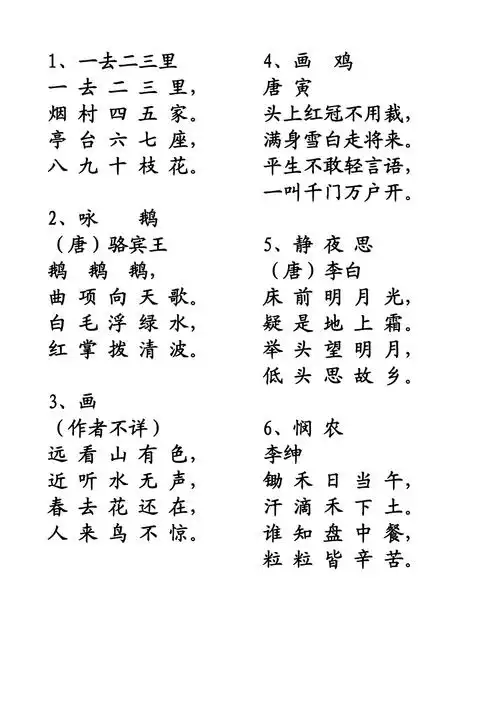 1、一去二三里
一去二三里，
烟村四五家。
亭台六七座，
八九十枝花。
2、咏 鹅
（唐）骆宾王
鹅 鹅 鹅，
曲项向天歌。
白毛浮绿水，
红掌拨清波。
3、画
（作者不详）
远看山有色，
近听水无声，
春去花还在，
人来鸟不惊。
4、画 鸡
唐 寅
头上红冠不用裁，
满身雪白走将来。
平生不敢轻言语，
一叫千门万户开。
5、静 夜 思
（唐）李白
床前明月光，
疑是地上霜。
举头望明月，
低头思故乡。
6、悯 农
李绅
锄禾日当午，
汗滴禾下土。
谁知盘中餐，
粒粒皆辛苦。